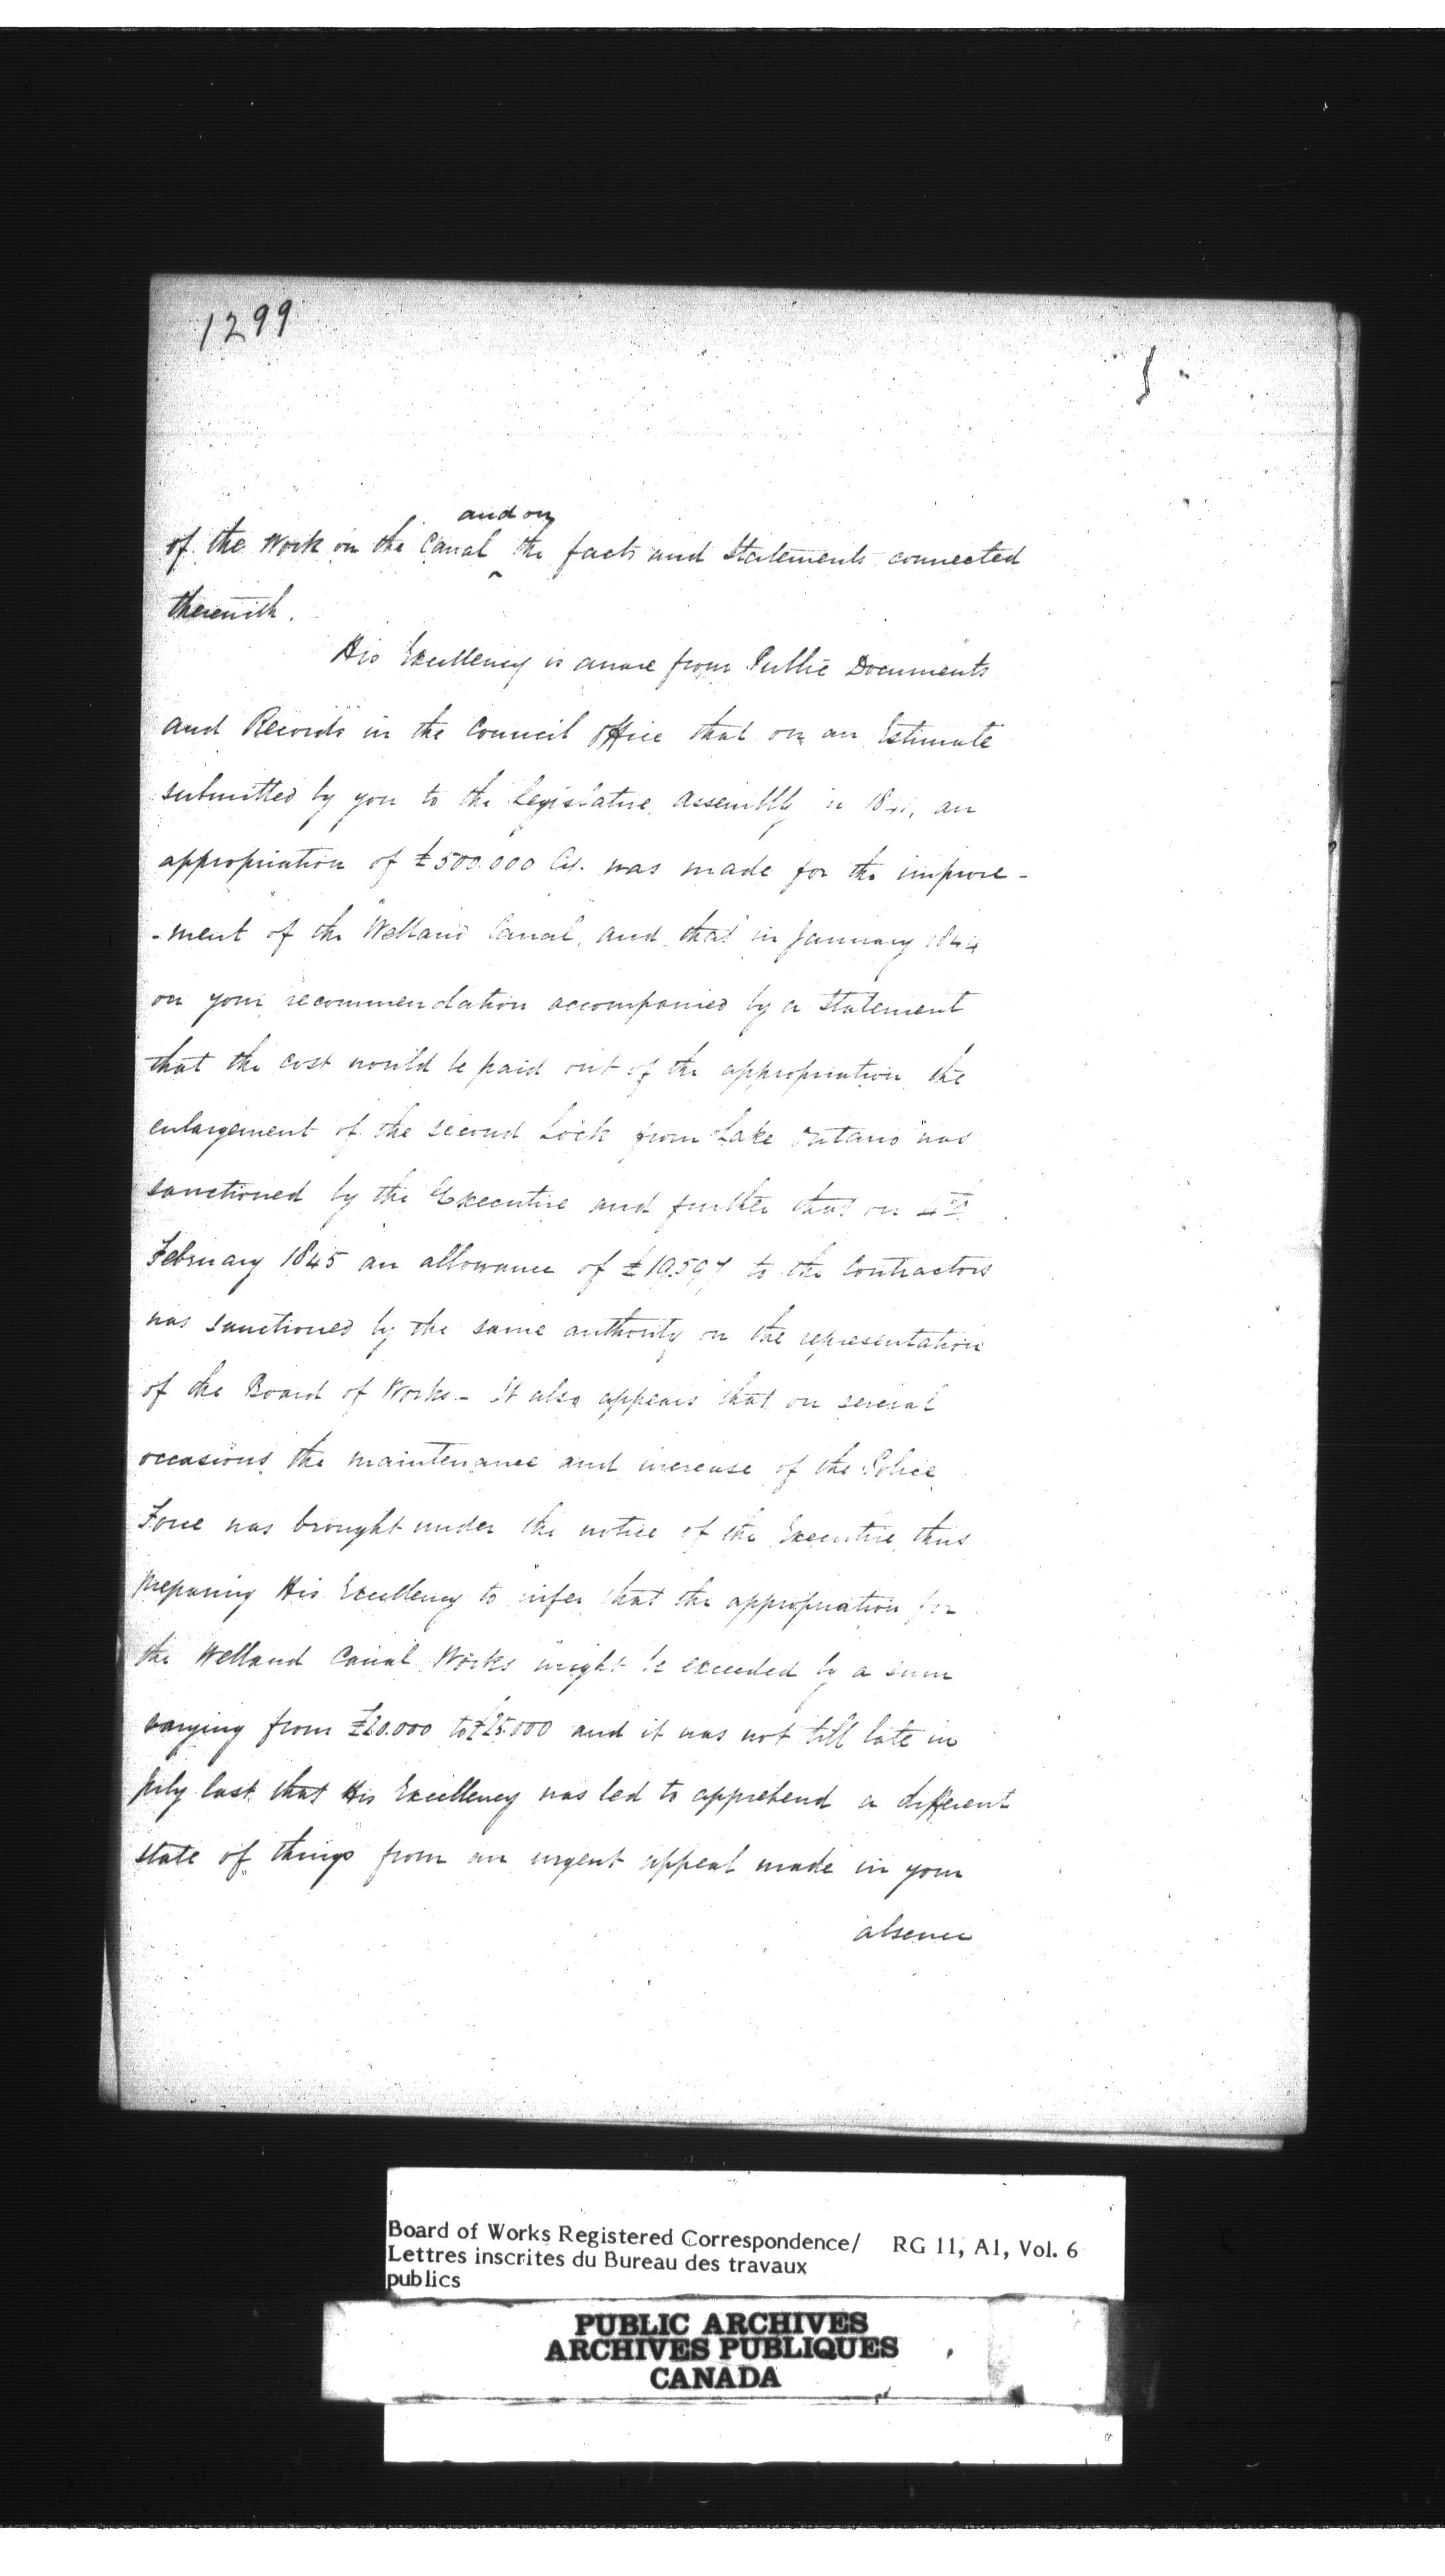 1299
and on
of the Work on the Canal ^ the facts and Statements connected
therewith.
His Excellency is aware from Public Documents
and Records in the Council Office that on an Estimate
submitted by you to the Legislative Assembly in 1841, an
appropriation of £500.000 Cy. was made for the improve-
-ment of the Welland Canal, and that in January 1844
on your recommendation accompanied by a Statement
that the cost would be paid out of the appropriation the
enlargement of the second Lock from Lake Ontario was
sanctioned by the Executive and further that on 4th
February 1845 an allowance of £19.597 to the Contractors
was sanctioned by the same authority on the representation
of the Board of Works - It also appears that on several
occasions the maintenance and increase of the Police
Force was brought under the notice of the Executive, thus
preparing His Excellency to infer that the appropriation for
the Welland Canal Works might be exceeded by a sum
varying from £20.000 to £25.000 and it was not till late in
July last that His Excellency was led to apprehend a different
state of things from an urgent appeal made in your
absence
Board of Works Registered Correspondence/ RG 11, A1, Vol. 6
Lettres inscrites du Bureau des travaux
publics
PUBLIC ARCHIVES
ARCHIVES PUBLIQUES
CANADA